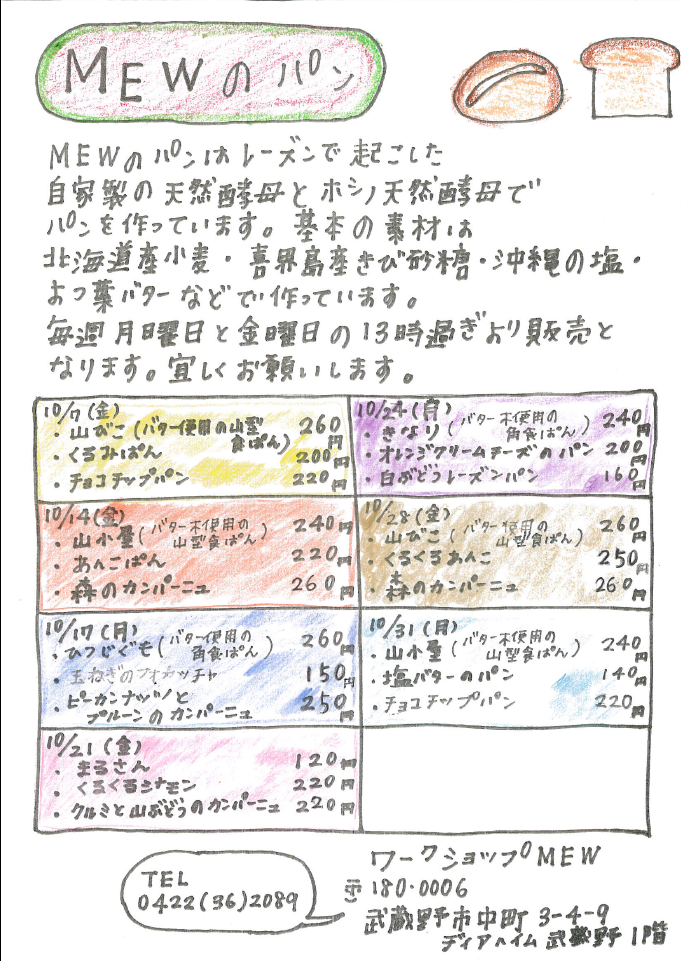 MEWのパン
MEWのパンはレーズンで起こした
自家製の天然酵母とホシノ天然酵母で
パンを作っています。基本の素材は
北海道産小麦・喜界島産きび砂糖・沖縄の塩・
よつ葉バターなどで作っています。
毎週月曜日と金曜日の13時過ぎより販売と
なります。宜しくお願いします。
10/7(金)
・山びこ(バター使用の山型食ぱん) 260円
・くるみぱん 200円
・チョコチップパン 220円
10/14(金)
・山小屋(バター未使用の山型食ぱん) 240円
・あんこぱん 220円
・森のカンパーニュ 260円
10/17(月)
・ひつじぐも(バター使用の角食ぱん) 260円
・玉ねぎのフォカッチャ 150円
・ピーカンナッツと
プルーンのカンパーニュ 250円
10/21(金)
・まるさん 120円
・くるくるシナモン 220円
・クルミと山ぶどうのカンパーニュ 220円
10/24(月)
・きなり(バター未使用の角食ぱん) 240円
・オレンジクリームチーズのパン 200円
・白ぶどうレーズンパン 160円
10/28(金)
・山びこ(バター使用の山型食ぱん) 260円
・くるくるあんこ 250円
・森のカンパーニュ 260円
10/31(月)
・山小屋(バター未使用の山型食ぱん) 240円
・塩バターのパン 140円
・チョコチップパン 220円
TEL
0422(36)2089
ワークショップMEW
〒180-0006
武蔵野市中町3-4-9
ディアハイム武蔵野1階